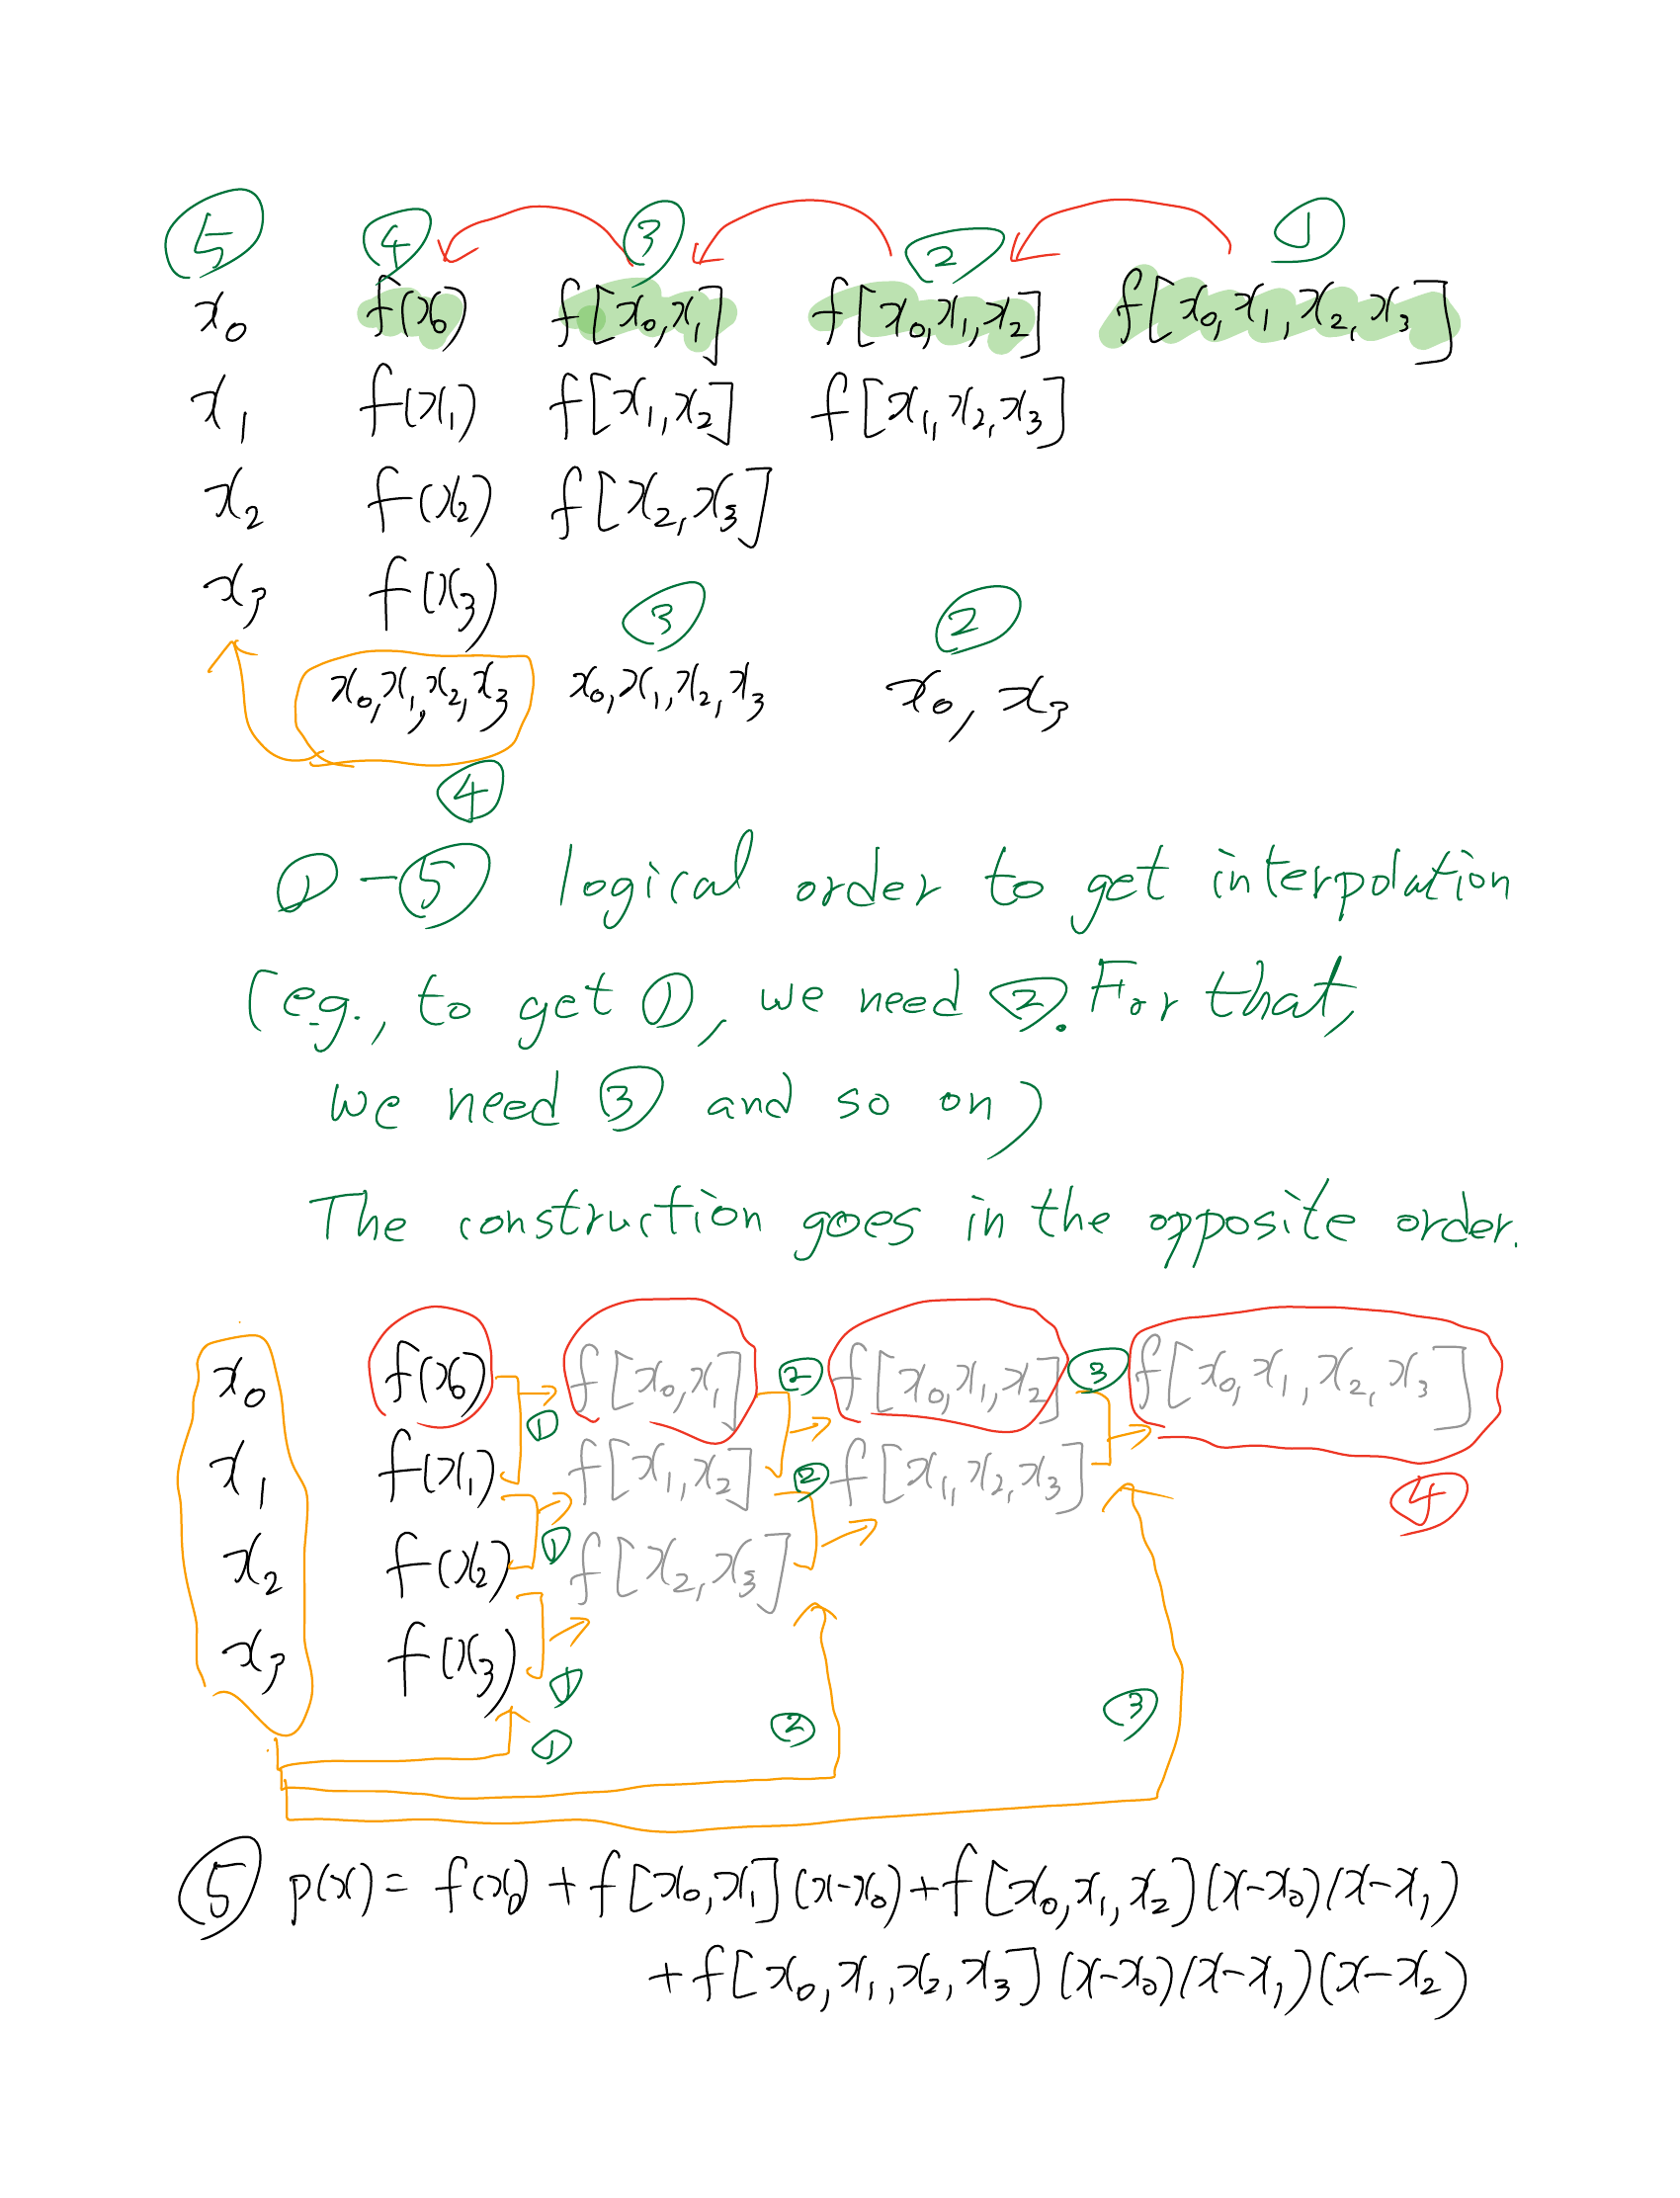 ⑤ ④ ③ ② ①
x₀ f(x₀) f[x₀,x₁] f[x₀,x₁,x₂] f[x₀,x₁,x₂,x₃]
x₁ f(x₁) f[x₁,x₂] f[x₁,x₂,x₃]
x₂ f(x₂) f[x₂,x₃]
x₃ f(x₃)
③ ②
x₀,x₁,x₂,x₃ x₀,x₁,x₂,x₃ x₀, x₃
④
①-⑤ logical order to get interpolation
(e.g., to get ①, we need ②. For that,
we need ③ and so on)
The construction goes in the opposite order.
x₀ f(x₀) f[x₀,x₁] ② f[x₀,x₁,x₂] ③ f[x₀,x₁,x₂,x₃]
①
x₁ f(x₁) f[x₁,x₂] ② f[x₁,x₂,x₃]
④
①
x₂ f(x₂) f[x₂,x₃]
x₃ f(x₃)
①
① ② ③
⑤ p(x) = f(x₀) + f[x₀,x₁](x-x₀)+f[x₀,x₁,x₂](x-x₀)(x-x₁)
+f[x₀,x₁,x₂,x₃](x-x₀)(x-x₁)(x-x₂)